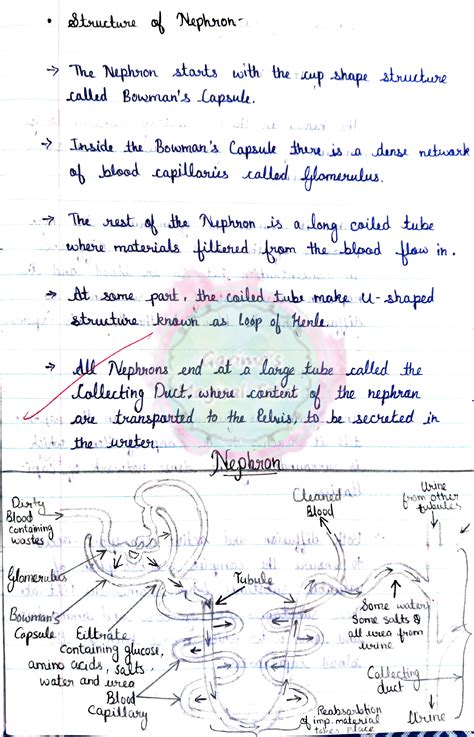 • Structure of Nephron-
→ The Nephron starts with the cup shape structure
called Bowman's Capsule.
→ Inside the Bowman's Capsule there is a dense network
of blood capillaries called Glomerulus.
→ The rest of the Nephron is a long coiled tube
where materials filtered from the blood flow in.
→ At some part, the coiled tube make U-shaped
structure known as loop of Henle.
→ All Nephrons end at a large tube called the
Collecting Duct, where content of the nephran
are transported to the Pelvis, to be secreted in
the ureter.
Nephron
Dirty
Blood
containing
wastes
Glomerulus
Bowman's
Capsule
Filtrate
Containing glucose,
amino acids, salts
water and urea
Blood
Capillary
Tubule
Cleaned
Blood
Urine
from other
tubules
Some water
Some salts &
all urea from
urine
Collecting
duct
Reabsorbtion
of imp. material
takes place
Urine